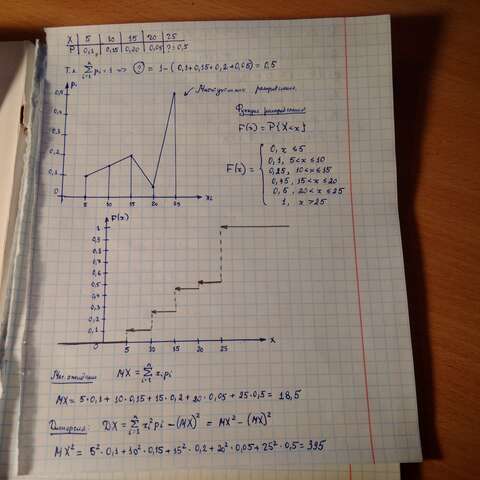 X 5 10 15 20 25
P 0,1 0,15 0,20 0,05 ?=0,5
Т.к. n Σ i=1 pi = 1 => ? = 1-(0,1+0,15+0,2+0,05) = 0,5
Pi
Многоугольник распределения.
0,5
0,4
0,3
0,2
0,1
0
5 10 15 20 25 xi
Функция распределения
F(x) = P{X<x}
F(x) =
0, x ≤ 5
0,1, 5 < x ≤ 10
0,25, 10 < x ≤ 15
0,45, 15 < x ≤ 20
0,5, 20 < x ≤ 25
1, x > 25
F(x)
1
0,9
0,8
0,7
0,6
0,5
0,4
0,3
0,2
0,1
0
5 10 15 20 25 x
Мат. ожидание MX = n Σ i=1 xi pi
MX = 5·0,1 + 10·0,15 + 15·0,2 + 20·0,05 + 25·0,5 = 18,5
Дисперсия: DX = n Σ i=1 xi² pi - (MX)² = MX² - (MX)²
MX² = 5²·0,1 + 10²·0,15 + 15²·0,2 + 20²·0,05 + 25²·0,5 = 395